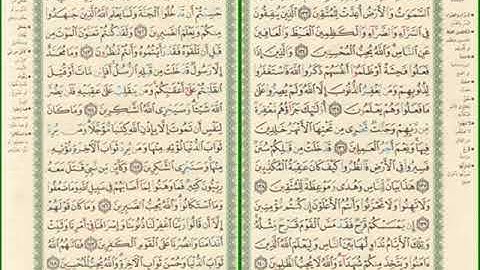 السَّمَٰوَٰتُ وَالْأَرْضُ أُعِدَّتْ لِلْمُتَّقِينَ ١٣٣ الَّذِينَ يُنفِقُونَ
فِي السَّرَّاءِ وَالضَّرَّاءِ وَالْكَٰظِمِينَ الْغَيْظَ وَالْعَافِينَ
عَنِ النَّاسِ وَاللَّهُ يُحِبُّ الْمُحْسِنِينَ ١٣٤ وَالَّذِينَ إِذَا
فَعَلُوا فَٰحِشَةً أَوْ ظَلَمُوا أَنفُسَهُمْ ذَكَرُوا اللَّهَ فَاسْتَغْفَرُوا
لِذُنُوبِهِمْ وَمَن يَغْفِرُ الذُّنُوبَ إِلَّا اللَّهُ وَلَمْ يُصِرُّوا عَلَىٰ
مَا فَعَلُوا وَهُمْ يَعْلَمُونَ ١٣٥ أُولَٰئِكَ جَزَاؤُهُم مَّغْفِرَةٌ
مِّن رَّبِّهِمْ وَجَنَّٰتٌ تَجْرِي مِن تَحْتِهَا الْأَنْهَٰرُ خَٰلِدِينَ
فِيهَا وَنِعْمَ أَجْرُ الْعَٰمِلِينَ ١٣٦ قَدْ خَلَتْ مِن قَبْلِكُمْ سُنَنٌ
فَسِيرُوا فِي الْأَرْضِ فَانظُرُوا كَيْفَ كَانَ عَٰقِبَةُ الْمُكَذِّبِينَ
١٣٧ هَٰذَا بَيَانٌ لِّلنَّاسِ وَهُدًى وَمَوْعِظَةٌ لِّلْمُتَّقِينَ ١٣٨
وَلَا تَهِنُوا وَلَا تَحْزَنُوا وَأَنتُمُ الْأَعْلَوْنَ إِن كُنتُم مُّؤْمِنِينَ
١٣٩ إِن يَمْسَسْكُمْ قَرْحٌ فَقَدْ مَسَّ الْقَوْمَ قَرْحٌ مِّثْلُهُ
وَتِلْكَ الْأَيَّامُ نُدَاوِلُهَا بَيْنَ النَّاسِ وَلِيَعْلَمَ اللَّهُ الَّذِينَ
ءَامَنُوا وَيَتَّخِذَ مِنكُمْ شُهَدَاءَ وَاللَّهُ لَا يُحِبُّ الظَّٰلِمِينَ ١٤٠
حَسِبْتُمْ أَن تَدْخُلُوا الْجَنَّةَ وَلَمَّا يَعْلَمِ اللَّهُ الَّذِينَ جَٰهَدُوا
مِنكُمْ وَيَعْلَمَ الصَّٰبِرِينَ ١٤٢ وَلَقَدْ كُنتُمْ تَمَنَّوْنَ الْمَوْتَ
مِن قَبْلِ أَن تَلْقَوْهُ فَقَدْ رَأَيْتُمُوهُ وَأَنتُمْ تَنظُرُونَ ١٤٣ وَمَا مُحَمَّدٌ
إِلَّا رَسُولٌ قَدْ خَلَتْ مِن قَبْلِهِ الرُّسُلُ أَفَإِين مَّاتَ أَوْ قُتِلَ
انقَلَبْتُمْ عَلَىٰ أَعْقَٰبِكُمْ وَمَن يَنقَلِبْ عَلَىٰ عَقِبَيْهِ فَلَن يَضُرَّ
اللَّهَ شَيْئًا وَسَيَجْزِي اللَّهُ الشَّٰكِرِينَ ١٤٤ وَمَا كَانَ
لِنَفْسٍ أَن تَمُوتَ إِلَّا بِإِذْنِ اللَّهِ كِتَٰبًا مُّؤَجَّلًا وَمَن يُرِدْ
ثَوَابَ الدُّنْيَا نُؤْتِهِ مِنْهَا وَمَن يُرِدْ ثَوَابَ الْءَاخِرَةِ نُؤْتِهِ
مِنْهَا وَسَنَجْزِي الشَّٰكِرِينَ ١٤٥ وَكَأَيِّن مِّن نَّبِيٍّ قَٰتَلَ مَعَهُ
رِبِّيُّونَ كَثِيرٌ فَمَا وَهَنُوا لِمَا أَصَابَهُمْ فِي سَبِيلِ اللَّهِ وَمَا ضَعُفُوا
وَمَا اسْتَكَانُوا وَاللَّهُ يُحِبُّ الصَّٰبِرِينَ ١٤٦ وَمَا كَانَ قَوْلَهُمْ
إِلَّا أَن قَالُوا رَبَّنَا اغْفِرْ لَنَا ذُنُوبَنَا وَإِسْرَافَنَا فِي أَمْرِنَا وَثَبِّتْ
أَقْدَامَنَا وَانصُرْنَا عَلَى الْقَوْمِ الْكَٰفِرِينَ ١٤٧ فَـَٔاتَىٰهُمُ اللَّهُ
ثَوَابَ الدُّنْيَا وَحُسْنَ ثَوَابِ الْءَاخِرَةِ وَاللَّهُ يُحِبُّ الْمُحْسِنِينَ ١٤٨